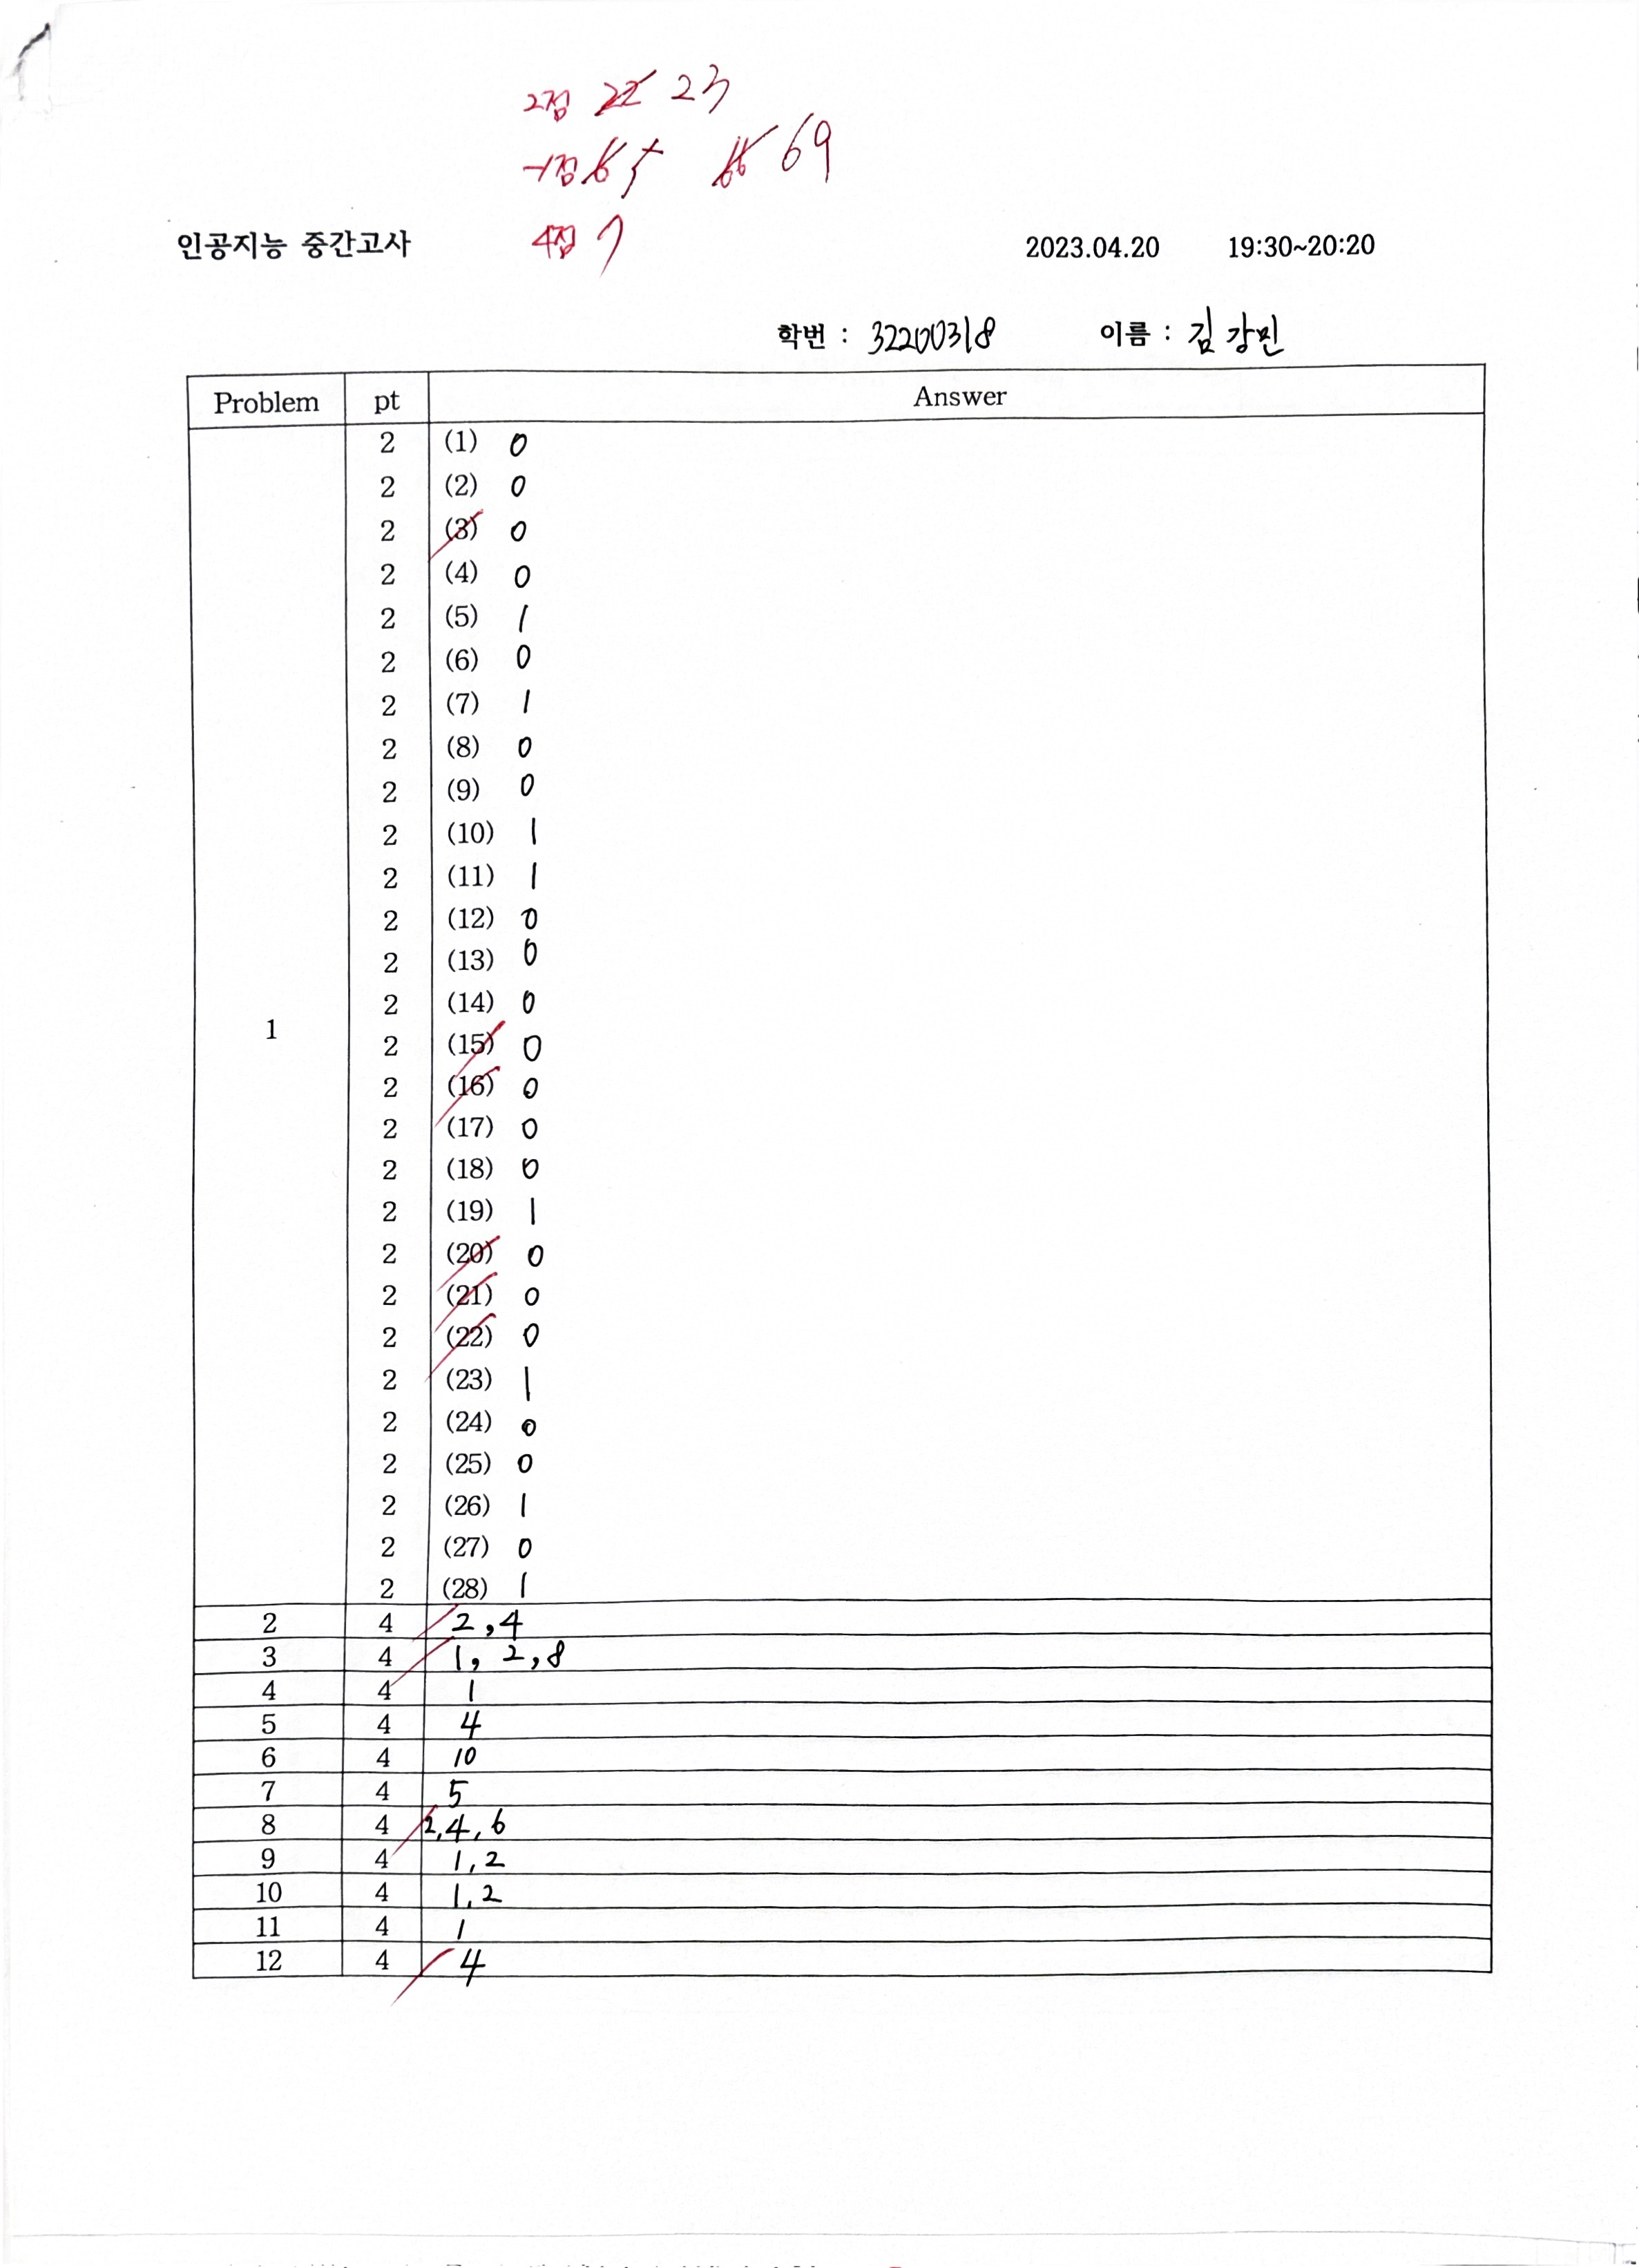 2점 22 23
-1점 6 5 66 69
4점 7
인공지능 중간고사 2023.04.20 19:30~20:20
학번 : 32200318 이름 : 김강민
Problem pt Answer
2 (1) 0
2 (2) 0
2 (3) 0
2 (4) 0
2 (5) 1
2 (6) 0
2 (7) 1
2 (8) 0
2 (9) 0
2 (10) 1
2 (11) 1
2 (12) 0
2 (13) 0
2 (14) 0
1
2 (15) 0
2 (16) 0
2 (17) 0
2 (18) 0
2 (19) 1
2 (20) 0
2 (21) 0
2 (22) 0
2 (23) 1
2 (24) 0
2 (25) 0
2 (26) 1
2 (27) 0
2 (28) 1
2 4 2,4
3 4 1, 2,8
4 4 1
5 4 4
6 4 10
7 4 5
8 4 2,4,6
9 4 1,2
10 4 1,2
11 4 1
12 4 4